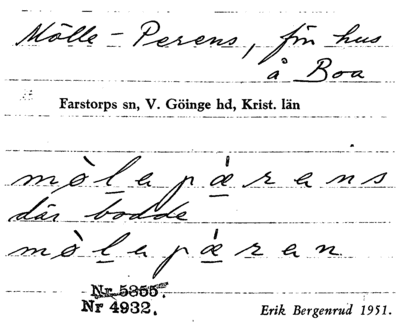 Mölle-Perens, fin hus
å Boa
Farstorps sn, V. Göinge hd, Krist. län
mòlapæ̀rans
där bodde
mòlapæ̀ran
Nr 5355.
Nr 4932.
Erik Bergenrud 1951.